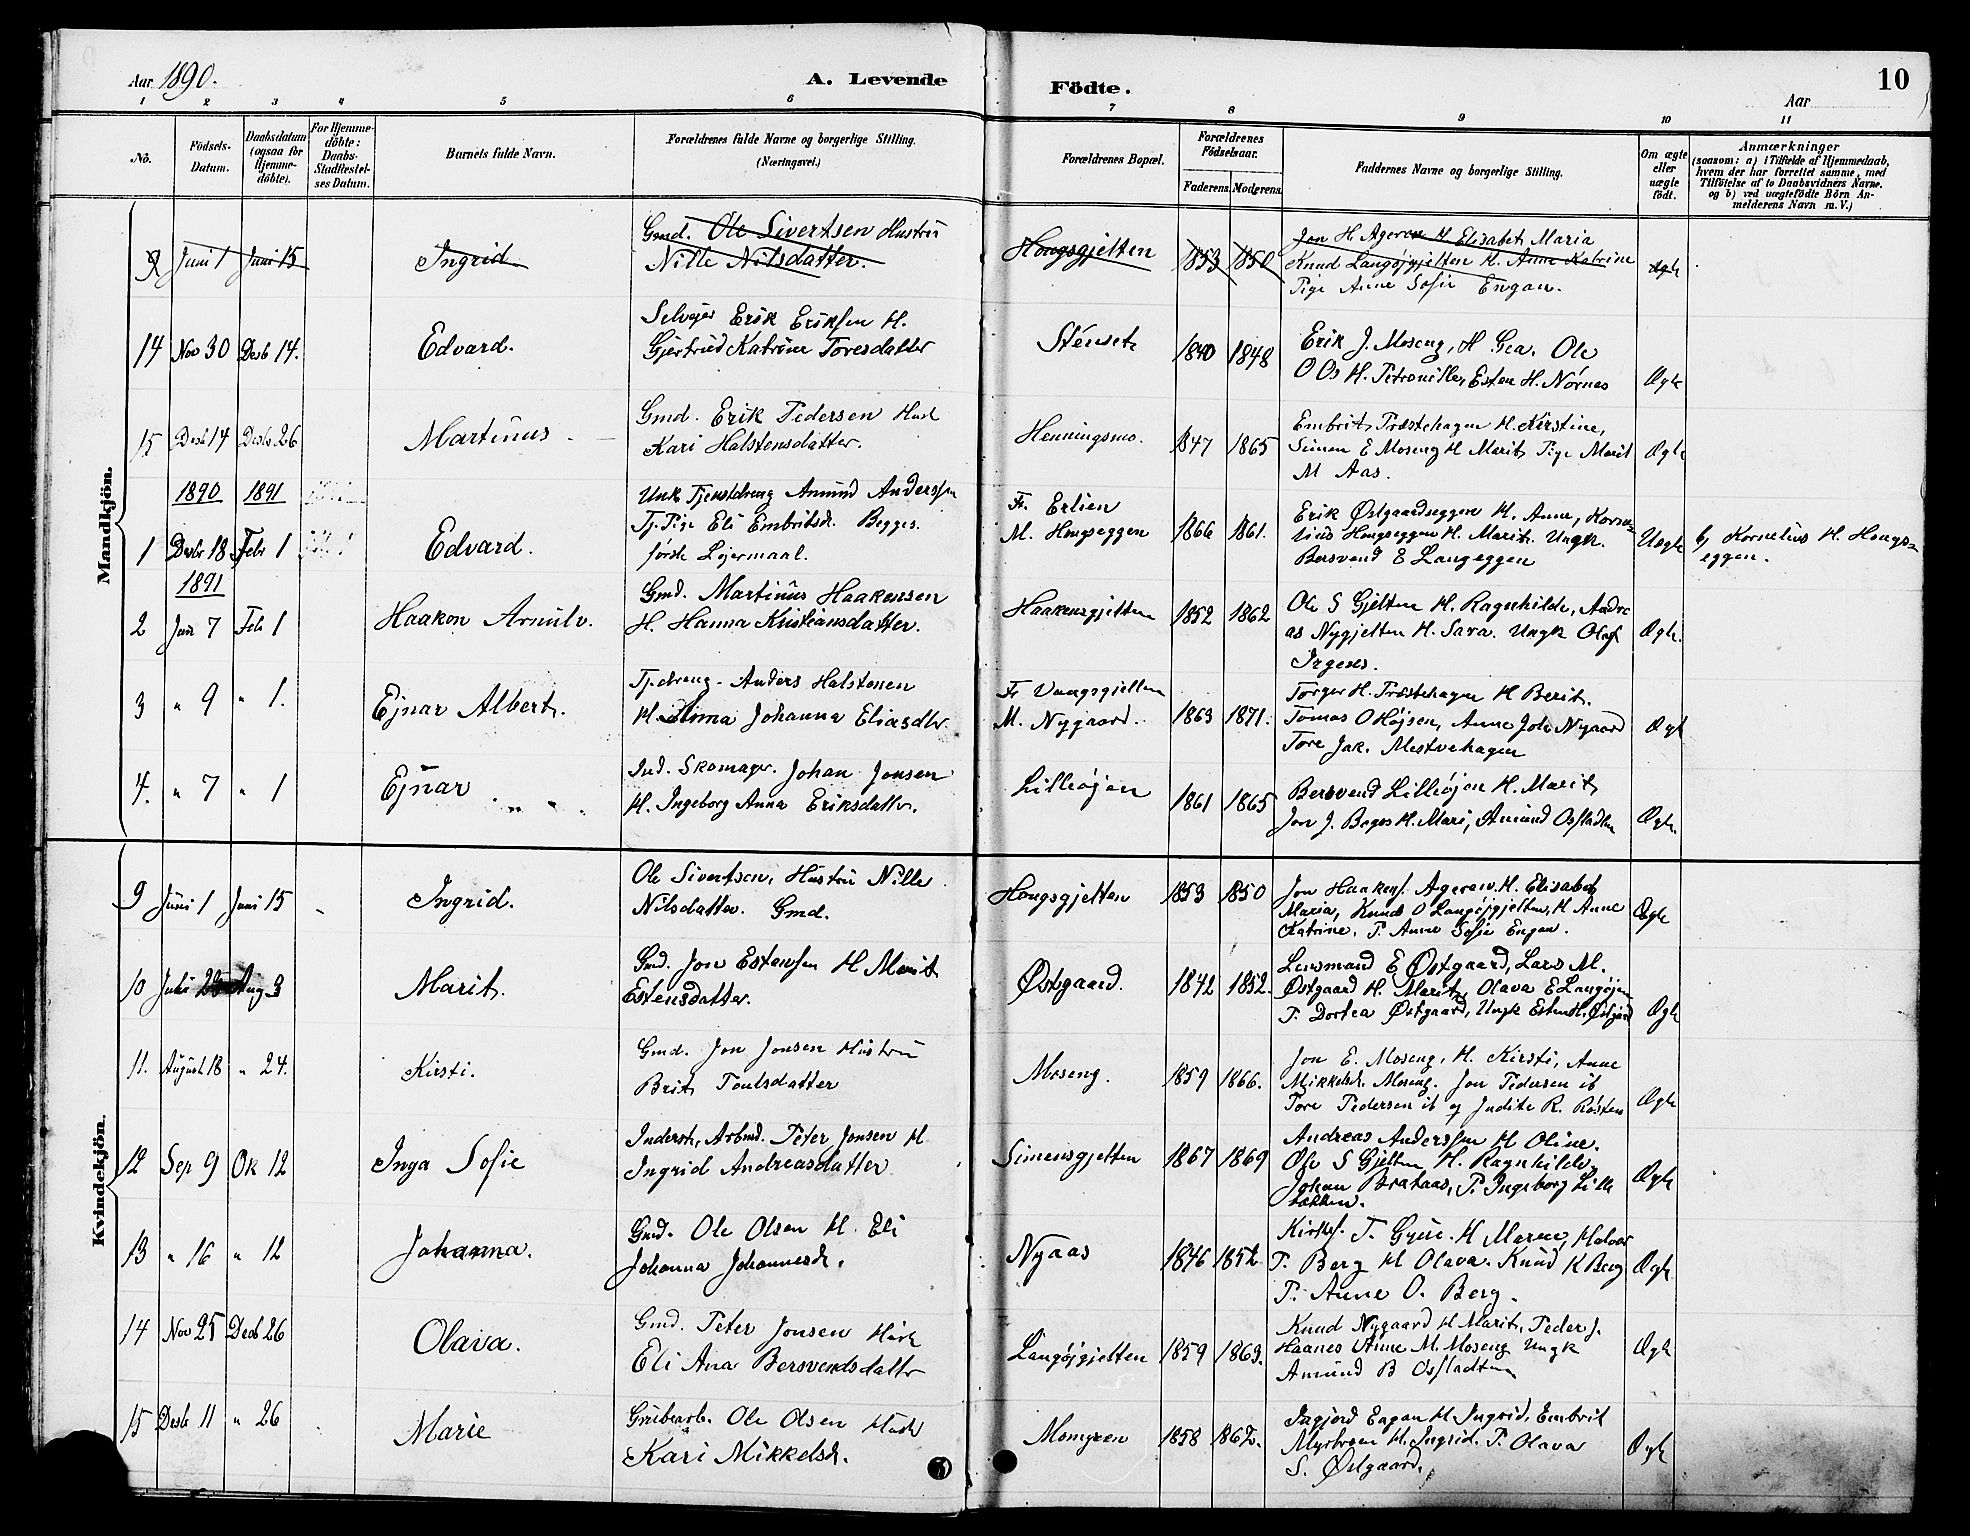 Aar 1890.
A. Levende
Födte.
10
Aar
1 2 3 4 5 6 7 8 9 10 11
No.
Födsels-
Datum.
Daabsdatum
(ogsaa for
Hjemme-
döbte).
For Hjemme-
döbte:
Daabs-
Stadfæstel-
ses Datum.
Barnets fulde Navn.
Forældrenes fulde Navne og borgerlige Stilling.
(Næringsvei.)
Forældrenes Bopæl.
Forældrenes
Födselsaar.
Faderens. Moderens.
Faddernes Navne og borgerlige Stilling.
Om ægte
eller
uægte
födt.
Anmærkninger
(saasom: a) i Tilfælde af Hjemmedaab,
hvem der har forrettet samme, med
Tilföielse af to Daabsvidners Navne.
og b) ved uægtefödte Börn An-
melderens Navn m. V.)
Mandkjön.
9 Juni 1 Juni 15 Ingrid
Gmd. Ole Sivertsen Hustru
Nille Nilsdatter.
Hongsgjelten 1853 1850
Jon H. Ageren H. Elisabet Maria
Knud Langøjgjelten H. Anne Katrine
Pige Anne Sofie Engan.
Ægte
14 Nov 30 Desb 14. Edvard.
Selvejer Erik Eriksen H.
Gjertrud Katrine Toresdatter
Stenset 1840 1848
Erik J. Moseng, H Gea. Ole
O Os H. Petronille, Esten H. Nørnes
Ægte
15 Desb 14 Desb 26 Martinus
Gmd. Erik Pedersen Hust
Kari Halstensdatter.
Henningsmo. 1847 1865
Embrit Træstehagen H. Kirstine,
Simen E Moseng H Marit, Pige Marit
M Aas
Ægte
1890 1891
1 Desbr 18 Febr 1 Edvard.
Unk Tjenstdreng Amund Anderssen
Tj. Pige Eli Embritsd. Begges
første Lejermaal.
Fr. Erlien
M. Hongseggen 1866 1861.
Erik Østgaardseggen H. Anne, Korne-
lius Hongseggen H. Marit. Ungk.
Bersvend E Langeggen
Uægte
b, Kornelius H. Hongs-
eggen.
1891
2 Jan 7 Feb 1 Haakon Arnulv.
Gmd. Martinus Haakensen
H. Hanna Kristiansdatter.
Haakensgjelten 1852 1862
Ole S Gjelten H. Ragnhilde, Andre
as Nygjelten H. Sara. Ungk Olaf
Irgens.
Ægte.
3 " 9 " 1. Ejnar Albert.
Tj. dreng. Anders Halstensen
H. Alma Johanna Eliasdtr.
Fr Vangsgjelten
M. Nygaard. 1863 1871.
Torger H. Træstehagen H Berit.
Tomas O Højsen, Anne Joh. Nygaard
Tore Jak. Mestvehagen
Ægt
4. " 7 " 1 Ejnar " "
Ind. Skomager. Johan Jonsen
H. Ingeborg Anna Eriksdattr.
Lilleøjen 1861 1865
Bersvend Lilleøjen H. Marit,
Jon J. Bages H. Mari, Amund Osfladten
Ægte.
Kvindekjön.
9 Juni 1 Juni 15 Ingrid.
Ole Sivertsen, Hustru Nille
Nilsdatter. Gmd.
Hongsgjelten 1853 1850
Jon Haakens. Ageren. H. Elisabet
Maria, Knud O Langøjgjelten, H Anne
Katrine, P. Anne Sofie Engan.
Ægte
10 Juli Aug 3 Marit.
Gmd. Jon Estensen H Marit
Estensdatter.
Østgaard. 1842 1852.
Lensmand E Østgaard, Lars M.
Østgaard H. Marit, Olava E Langøjen
P. Dortea Østgaard, Ungk Esten H. Østgard
Ægte
11. August 18 " 24. Kirsti.
Gmd. Jon Jonsen Hustru
Brit Poulsdatter
Moseng. 1859 1866.
Jon E. Moseng, H. Kirsti, Anne
Mikkelsd. Moseng. Jon Pedersen ib
Tore Pedersen ib og Judite R. Røsten
Ægte
12 Sep 9 Ok 12 Inga Sofie
Inderst, Arbmd. Peter Jonsen H
Ingrid Andreasdatter
Simensgjelten 1867 1869
Andreas Anderssen H Oline.
Ole S Gjelten H. Ragnhilde,
Johan Brataas, P. Ingeborg Lille
bakken.
Ægte
13 " 16 " 12 Johanna.
Gmd. Ole Olsen H. Eli
Johanna Johannesd.
Nyaas 1846 1852.
Kirkes. T. H Maren, Halvor
T. Berg H Olava. Knud K Berg
P. Anne O. Berg.
Ægte
14 Nov 25 Desb 26 Olava.
Gmd. Peter Jonsen Hust
Eli Ana Bersvendsdattr
Langøjgjelten 1859 1863.
Knud Nygaard H Marit, Peder J.
Haanes Anne M. Moseng Ungk
Amund B Osfladten
Ægte
15 Desb 11 " 26 Marie
Grubearb. Ole Olsen Hust
Kari Mikkelsd.
Momyren 1858 1862.
Ingjerd Engan H. Ingrid, Embrit
Myrbroen H. Ingrid. P. Olava
S. Østgaard.
Ægte